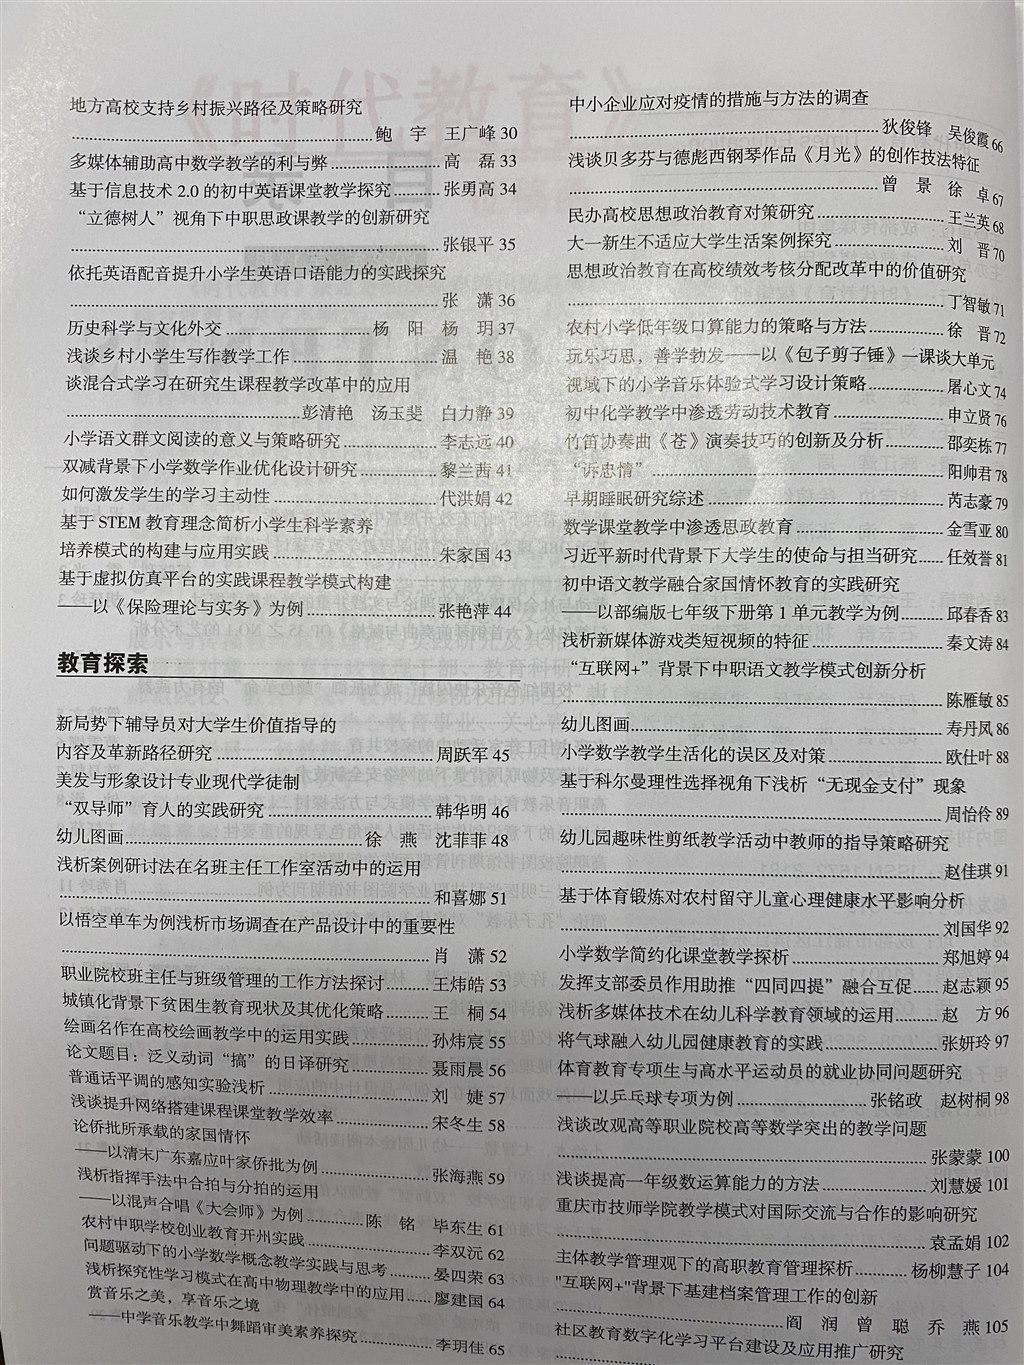 地方高校支持乡村振兴路径及策略研究
鲍 宇 王广峰 30
多媒体辅助高中数学教学的利与弊 高 磊 33
基于信息技术 2.0 的初中英语课堂教学探究 张勇高 34
“立德树人”视角下中职思政课教学的创新研究
张银平 35
依托英语配音提升小学生英语口语能力的实践探究
张 潇 36
历史科学与文化外交 杨 阳 杨 玥 37
浅谈乡村小学生写作教学工作 温 艳 38
谈混合式学习在研究生课程教学改革中的应用
彭清艳 汤玉斐 白力静 39
小学语文群文阅读的意义与策略研究 李志远 40
双减背景下小学数学作业优化设计研究 黎兰茜 41
如何激发学生的学习主动性 代洪娟 42
基于 STEM 教育理念简析小学生科学素养
培养模式的构建与应用实践 朱家国 43
基于虚拟仿真平台的实践课程教学模式构建
——以《保险理论与实务》为例 张艳萍 44
教育探索
新局势下辅导员对大学生价值指导的
内容及革新路径研究 周跃军 45
美发与形象设计专业现代学徒制
“双导师”育人的实践研究 韩华明 46
幼儿图画 徐 燕 沈菲菲 48
浅析案例研讨法在名班主任工作室活动中的运用
和喜娜 51
以悟空单车为例浅析市场调查在产品设计中的重要性
肖 潇 52
职业院校班主任与班级管理的工作方法探讨 王炜皓 53
城镇化背景下贫困生教育现状及其优化策略 王 桐 54
绘画名作在高校绘画教学中的运用实践 孙炜宸 55
论文题目：泛义动词“搞”的日译研究 聂雨晨 56
普通话平调的感知实验浅析 刘 婕 57
浅谈提升网络搭建课程课堂教学效率 宋冬生 58
论侨批所承载的家国情怀
——以清末广东嘉应叶家侨批为例 张海燕 59
浅析指挥手法中合拍与分拍的运用
——以混声合唱《大会师》为例 陈 铭 毕东生 61
农村中职学校创业教育开州实践 李双沅 62
问题驱动下的小学数学概念教学实践与思考 晏四荣 63
浅析探究性学习模式在高中物理教学中的应用 廖建国 64
赏音乐之美，享音乐之境
——中学音乐教学中舞蹈审美素养探究 李玥佳 65
中小企业应对疫情的措施与方法的调查
狄俊锋 吴俊霞 66
浅谈贝多芬与德彪西钢琴作品《月光》的创作技法特征
曾 景 徐 卓 67
民办高校思想政治教育对策研究 王兰英 68
大一新生不适应大学生活案例探究 刘 晋 70
思想政治教育在高校绩效考核分配改革中的价值研究
丁智敏 71
农村小学低年级口算能力的策略与方法 徐 晋 72
玩乐巧思，善学勃发——以《包子剪子锤》一课谈大单元
视域下的小学音乐体验式学习设计策略 屠心文 74
初中化学教学中渗透劳动技术教育 申立贤 76
竹笛协奏曲《苍》演奏技巧的创新及分析 邵奕栋 77
“诉忠情” 阳帅君 78
早期睡眠研究综述 芮志豪 79
数学课堂教学中渗透思政教育 金雪亚 80
习近平新时代背景下大学生的使命与担当研究 任效誉 81
初中语文教学融合家国情怀教育的实践研究
——以部编版七年级下册第 1 单元教学为例 邱春香 83
浅析新媒体游戏类短视频的特征 秦文涛 84
“互联网+”背景下中职语文教学模式创新分析
陈雁敏 85
幼儿图画 寿丹凤 86
小学数学教学生活化的误区及对策 欧仕叶 88
基于科尔曼理性选择视角下浅析“无现金支付”现象
周怡伶 89
幼儿园趣味性剪纸教学活动中教师的指导策略研究
赵佳琪 91
基于体育锻炼对农村留守儿童心理健康水平影响分析
刘国华 92
小学数学简约化课堂教学探析 郑旭婷 94
发挥支部委员作用助推“四同四提”融合互促 赵志颖 95
浅析多媒体技术在幼儿科学教育领域的运用 赵 方 96
将气球融入幼儿园健康教育的实践 张妍玲 97
体育教育专项生与高水平运动员的就业协同问题研究
——以乒乓球专项为例 张铭政 赵树桐 98
浅谈改观高等职业院校高等数学突出的教学问题
张蒙蒙 100
浅谈提高一年级数运算能力的方法 刘慧媛 101
重庆市技师学院教学模式对国际交流与合作的影响研究
袁孟娟 102
主体教学管理观下的高职教育管理探析 杨柳慧子 104
"互联网+"背景下基建档案管理工作的创新
阎 润 曾 聪 乔 燕 105
社区教育数字化学习平台建设及应用推广研究